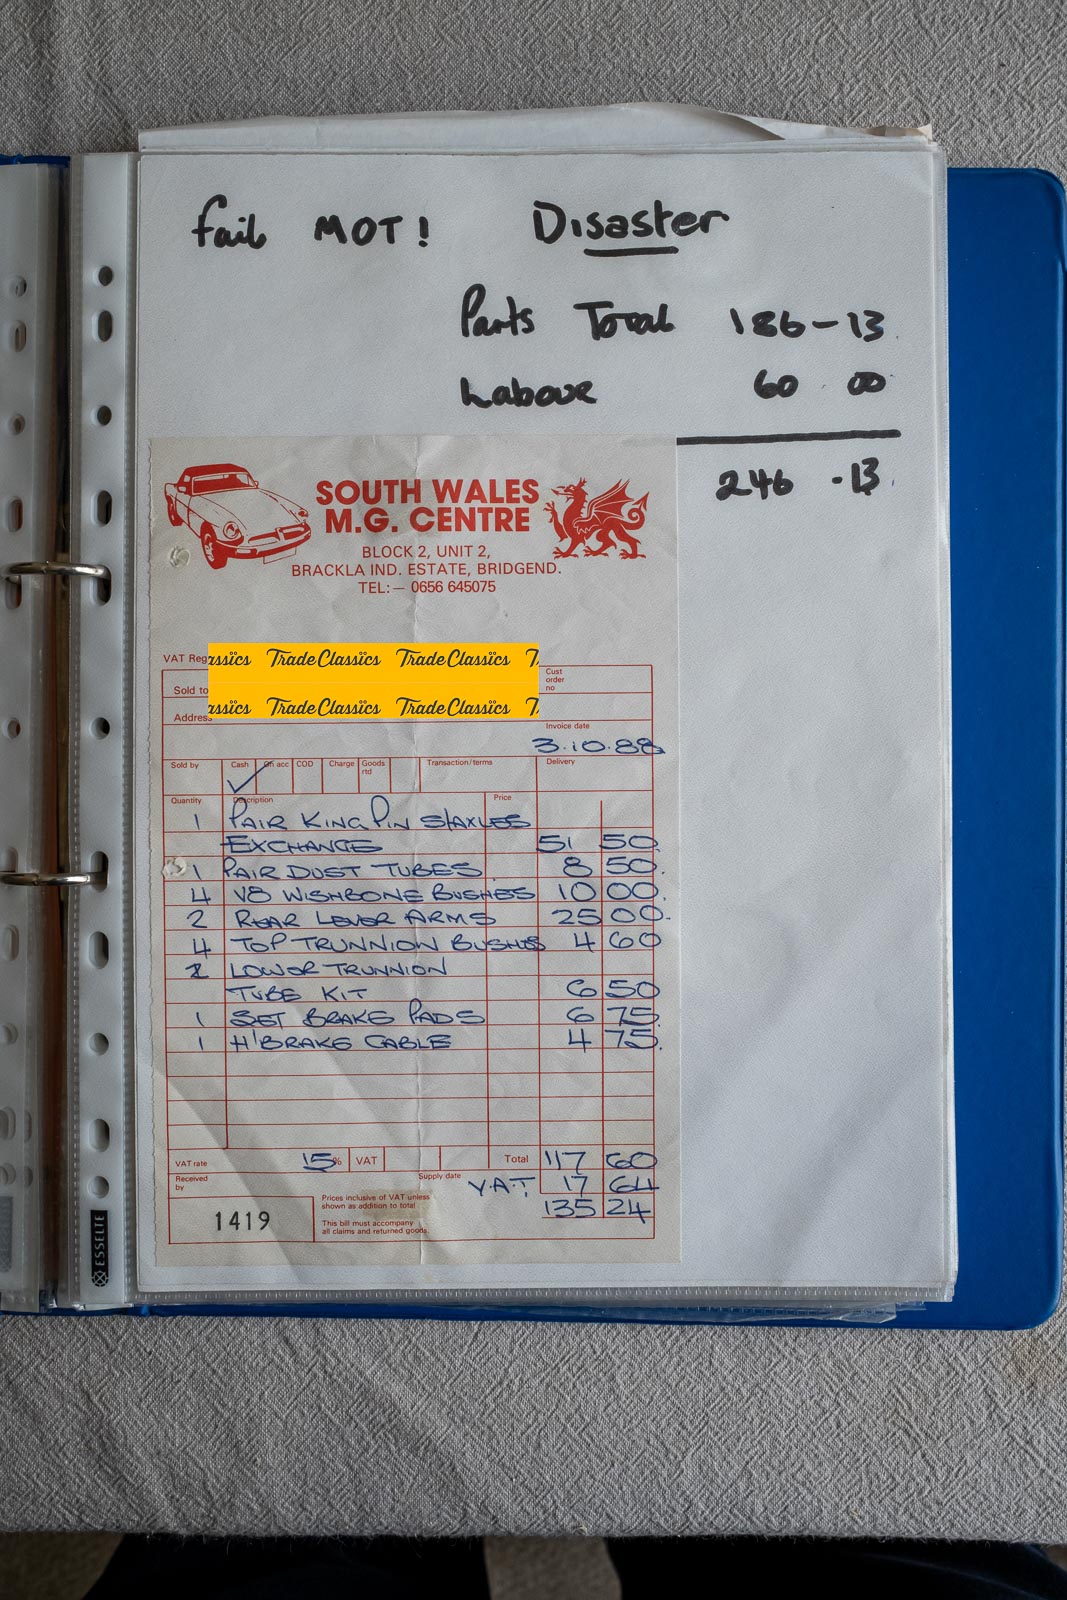 Fail MOT! Disaster
Parts Total 186-13
Labour 60 00
246 -13
SOUTH WALES
M.G. CENTRE
BLOCK 2, UNIT 2,
BRACKLA IND. ESTATE, BRIDGEND.
TEL:— 0656 645075
VAT Reg
assics Trade Classics Trade Classics T
Sold to
assics Trade Classics Trade Classics T
Address
Cust
order
no
Invoice date
3.10.88
Sold by Cash On acc COD Charge Goods rtd Transaction/terms Delivery
Quantity Description Price
1 PAIR KING PIN S/AXLES
EXCHANGE 51 50
1 PAIR DUST TUBES 8 50
4 V8 WISHBONE BUSHES 10 00
2 REAR LEVER ARMS 25 00
4 TOP TRUNNION BUSHES 4 60
2 LOWER TRUNNION
TUBE KIT 6 50
1 SET BRAKE PADS 6 75
1 H'BRAKE CABLE 4 75
VAT rate 15% VAT Total 117 60
Received
by
Supply date V.A.T. 17 64
135 24
1419
Prices inclusive of VAT unless
shown as addition to total
This bill must accompany
all claims and returned goods.
ESSELTE